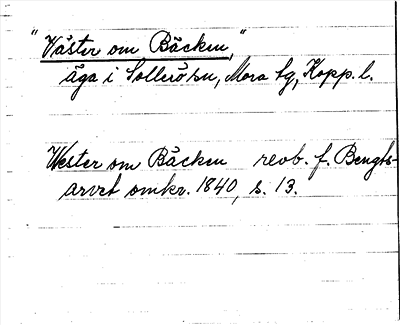 "Väster om Bäcken,"
äga i Sollerö sn, Mora tg, Kopp. l.
Wester om Bäcken revb. f. Bengts-
arvet omkr. 1840, s. 13.